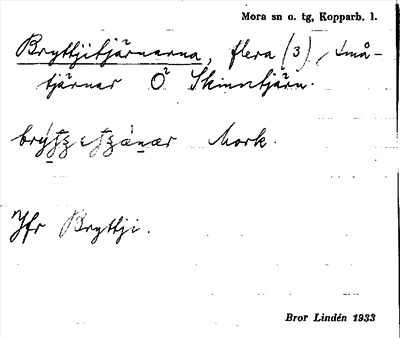 Mora sn o. tg, Kopparb. l.
Bryttjitjärnarna, flera (3), små-
tjärnar O² Skinntjärn.
Mork.
Jfr Bryttji.
Bror Lindén 1933